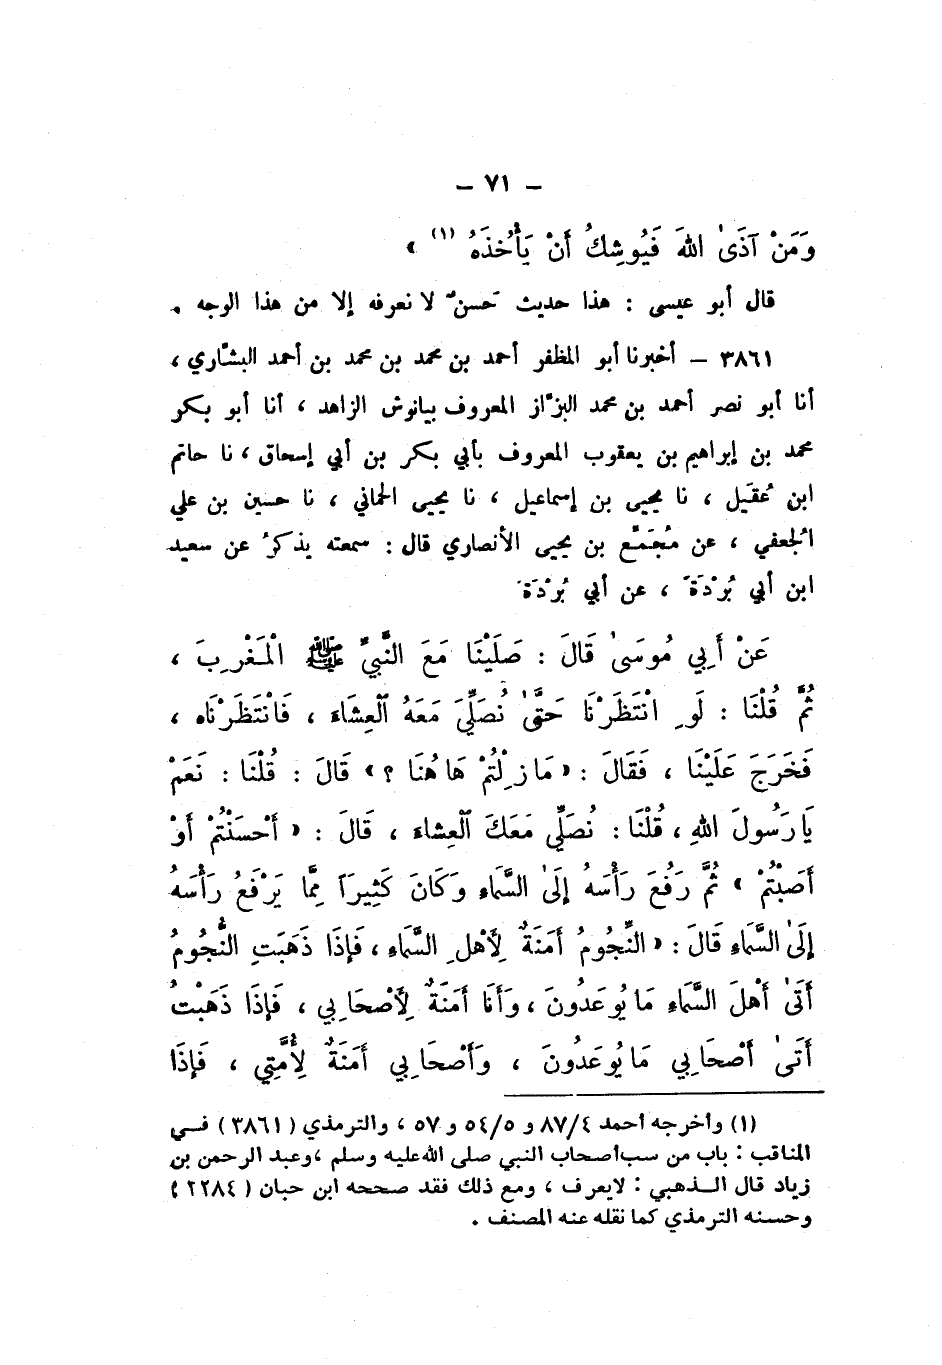 – ٧١ –
وَمَنْ آذَىٰ اللهَ فَيُوشِكُ أَنْ يَأْخُذَهُ (١) »
قال أبو عيسى : هذا حديث حَسنٌ لا نعرفه إلا من هذا الوجه .
٣٨٦١ – أخبرنا أبو المظفر أحمد بن محمد بن محمد بن أحمد البشّاري ،
أنا أبو نصر أحمد بن محمد البزّاز المعروف ببانوش الزاهد ، أنا أبو بكر
محمد بن إبراهيم بن يعقوب المعروف بأبي بكر بن أبي إسحاق ، نا حاتم
ابن عُقَيل ، نا يحيى بن إسماعيل ، نا يحيى الحماني ، نا حسين بن علي
الجُعفي ، عن مُجَمِّع بن يحيى الأنصاري قال : سمعته يذكرُ عن سعيد
ابن أبي بُرْدَةَ ، عن أبي بُرْدَةَ
عَنْ أَبِي مُوسَىٰ قَالَ : صَلَّيْنَا مَعَ النَّبِيِّ ﷺ الْمَغْرِبَ ،
ثُمَّ قُلْنَا : لَوِ انْتَظَرْنَا حَتَّىٰ نُصَلِّيَ مَعَهُ الْعِشَاءَ ، فَانْتَظَرْنَاه ،
فَخَرَجَ عَلَيْنَا ، فَقَالَ : « مَا زِلْتُمْ هَا هُنَا ؟ » قَالَ : قُلْنَا : نَعَمْ
يَا رَسُولَ اللهِ ، قُلْنَا : نُصَلِّي مَعَكَ الْعِشَاءَ ، قَالَ : « أَحْسَنْتُمْ أَوْ
أَصَبْتُمْ » ثُمَّ رَفَعَ رَأْسَهُ إِلَىٰ السَّمَاءِ وَكَانَ كَثِيرَاً مِمَّا يَرْفَعُ رَأْسَهُ
إِلَىٰ السَّمَاءِ قَالَ : « النُّجُومُ أَمَنَةٌ لِأَهْلِ السَّمَاءِ ، فَإِذَا ذَهَبَتِ النُّجُومُ
أَتَىٰ أَهْلَ السَّمَاءِ مَا يُوعَدُونَ ، وَأَنَا أَمَنَةٌ لِأَصْحَابِي ، فَإِذَا ذَهَبْتُ
أَتَىٰ أَصْحَابِي مَا يُوعَدُونَ ، وَأَصْحَابِي أَمَنَةٌ لِأُمَّتِي ، فَإِذَا
(١) وأخرجه أحمد ٨٧/٤ و ٥٤/٥ و ٥٧ ، والترمذي ( ٣٨٦١ ) فـي
المناقب : باب من سب أصحاب النبي صلى الله عليه وسلم ، وعبد الرحمن بن
زياد قال الـذهبي : لايعرف ، ومع ذلك فقد صححه ابن حبان ( ٢٢٨٤ )
وحسنه الترمذي كما نقله عنه المصنف .